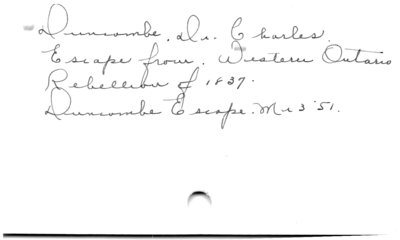 Duncombe, Dr. Charles.
Escape from. Western Ontario
Rebellion of 1837.
Duncombe Escape. Mr 3 '51.